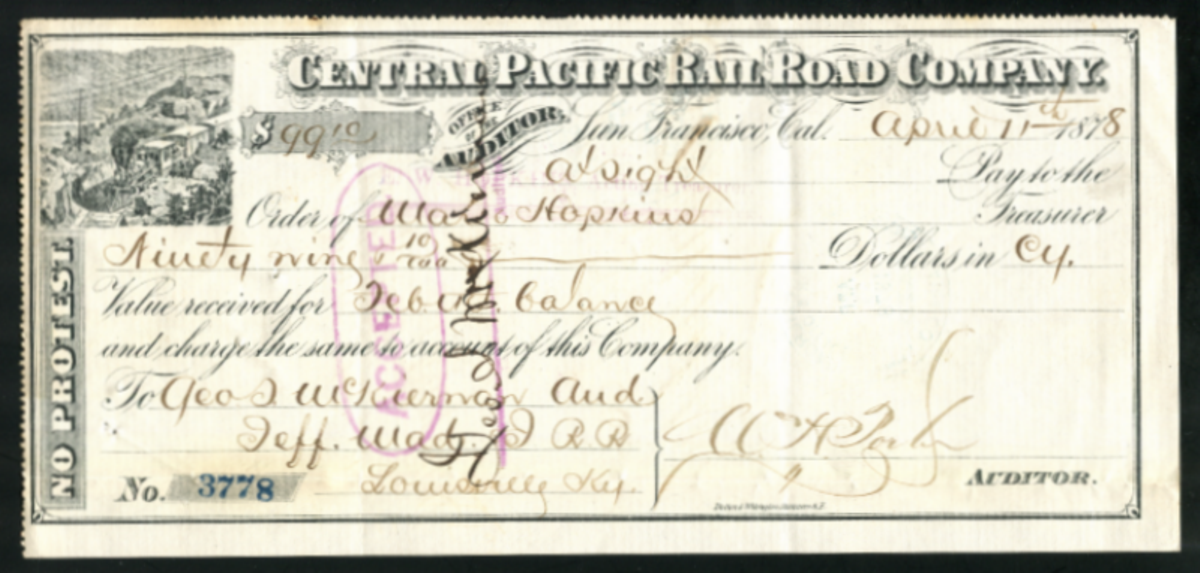 CENTRAL PACIFIC RAIL ROAD COMPANY.
$ 99 10
OFFICE OF THE AUDITOR,
San Francisco, Cal. April 11th 1878
At sight Pay to the
Order of Mark Hopkins Treasurer
Ninety nine & 10/100 Dollars in Cy.
Value received for Feb balance
and charge the same to account of this Company.
To Geo S McKiernan Aud
Jeff. Mad. & I R R
Louisville Ky.
No. 3778
AUDITOR.
NO PROTEST.
ACCEPTED